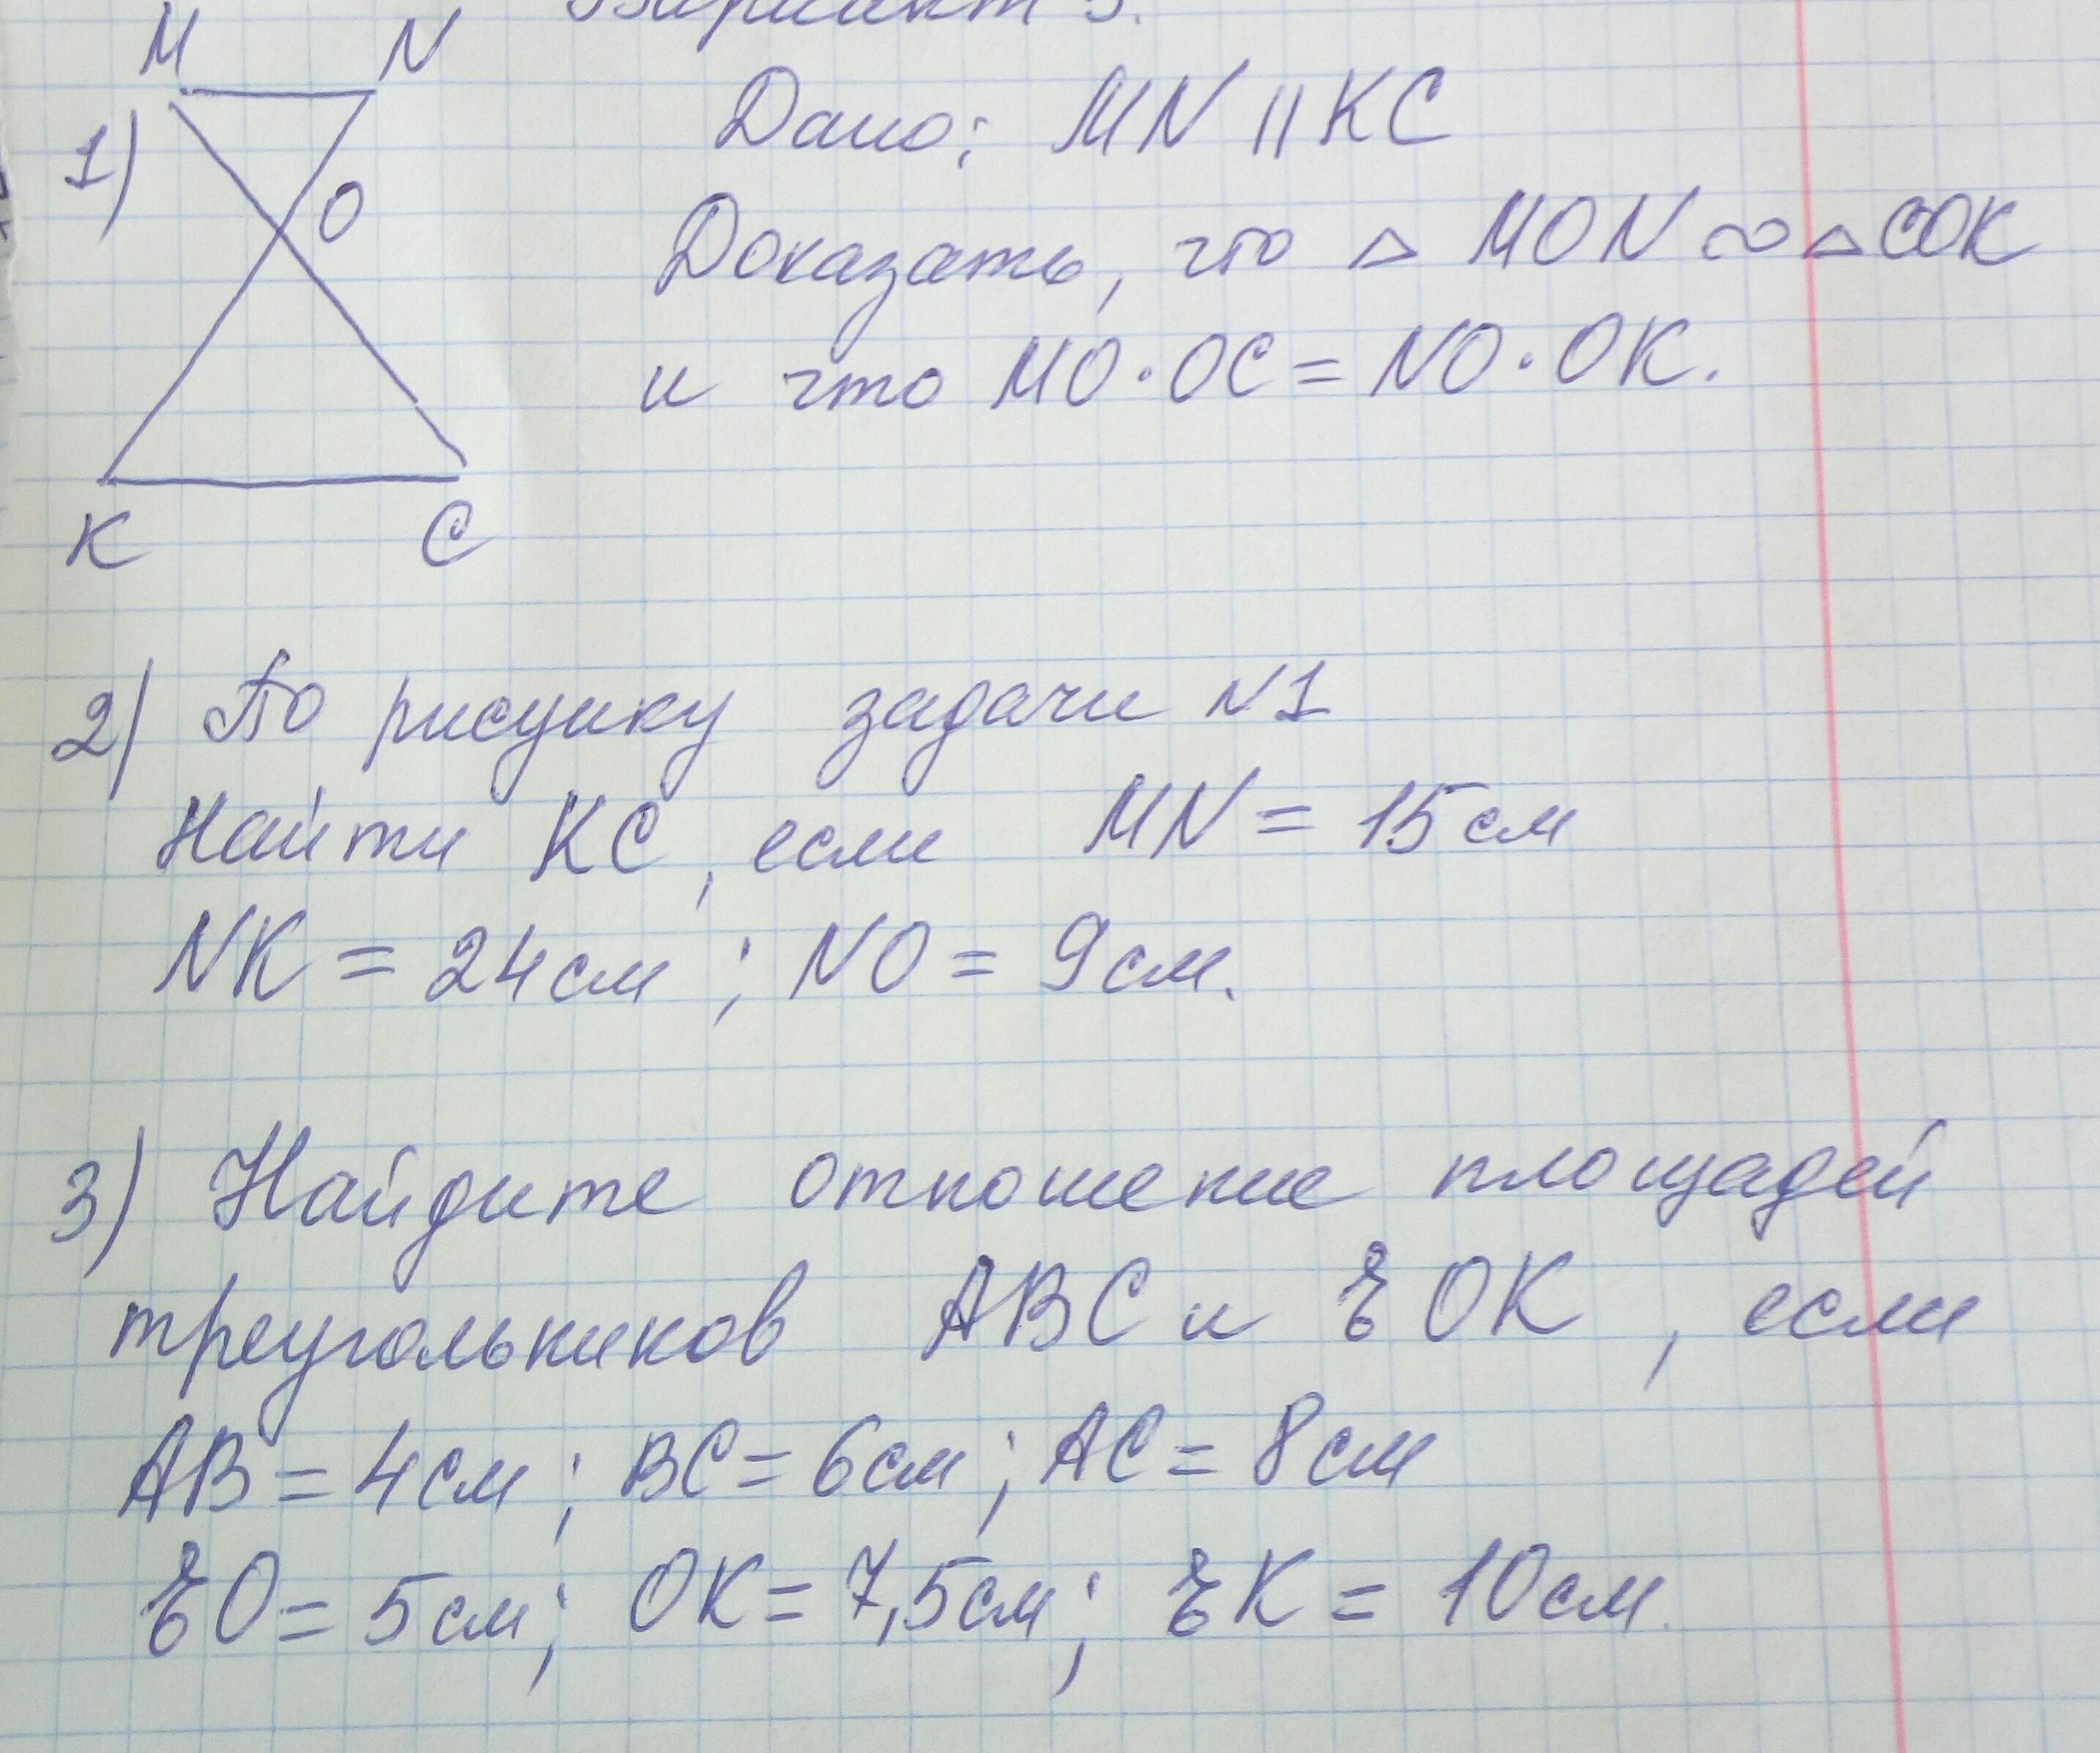 Вариант 3.
M N
1)
O
K C
Дано: MN || KC
Доказать, что △ MON ∾ △ COK
и что MO · OC = NO · OK.
2) По рисунку задачи N1
Найти KC, если MN = 15 см
NK = 24 см ; NO = 9 см.
3) Найдите отношение площадей
треугольников ABC и OK , если
AB = 4 см ; BC = 6 см ; AC = 8 см
O = 5 см ; OK = 7,5 см ; K = 10 см.